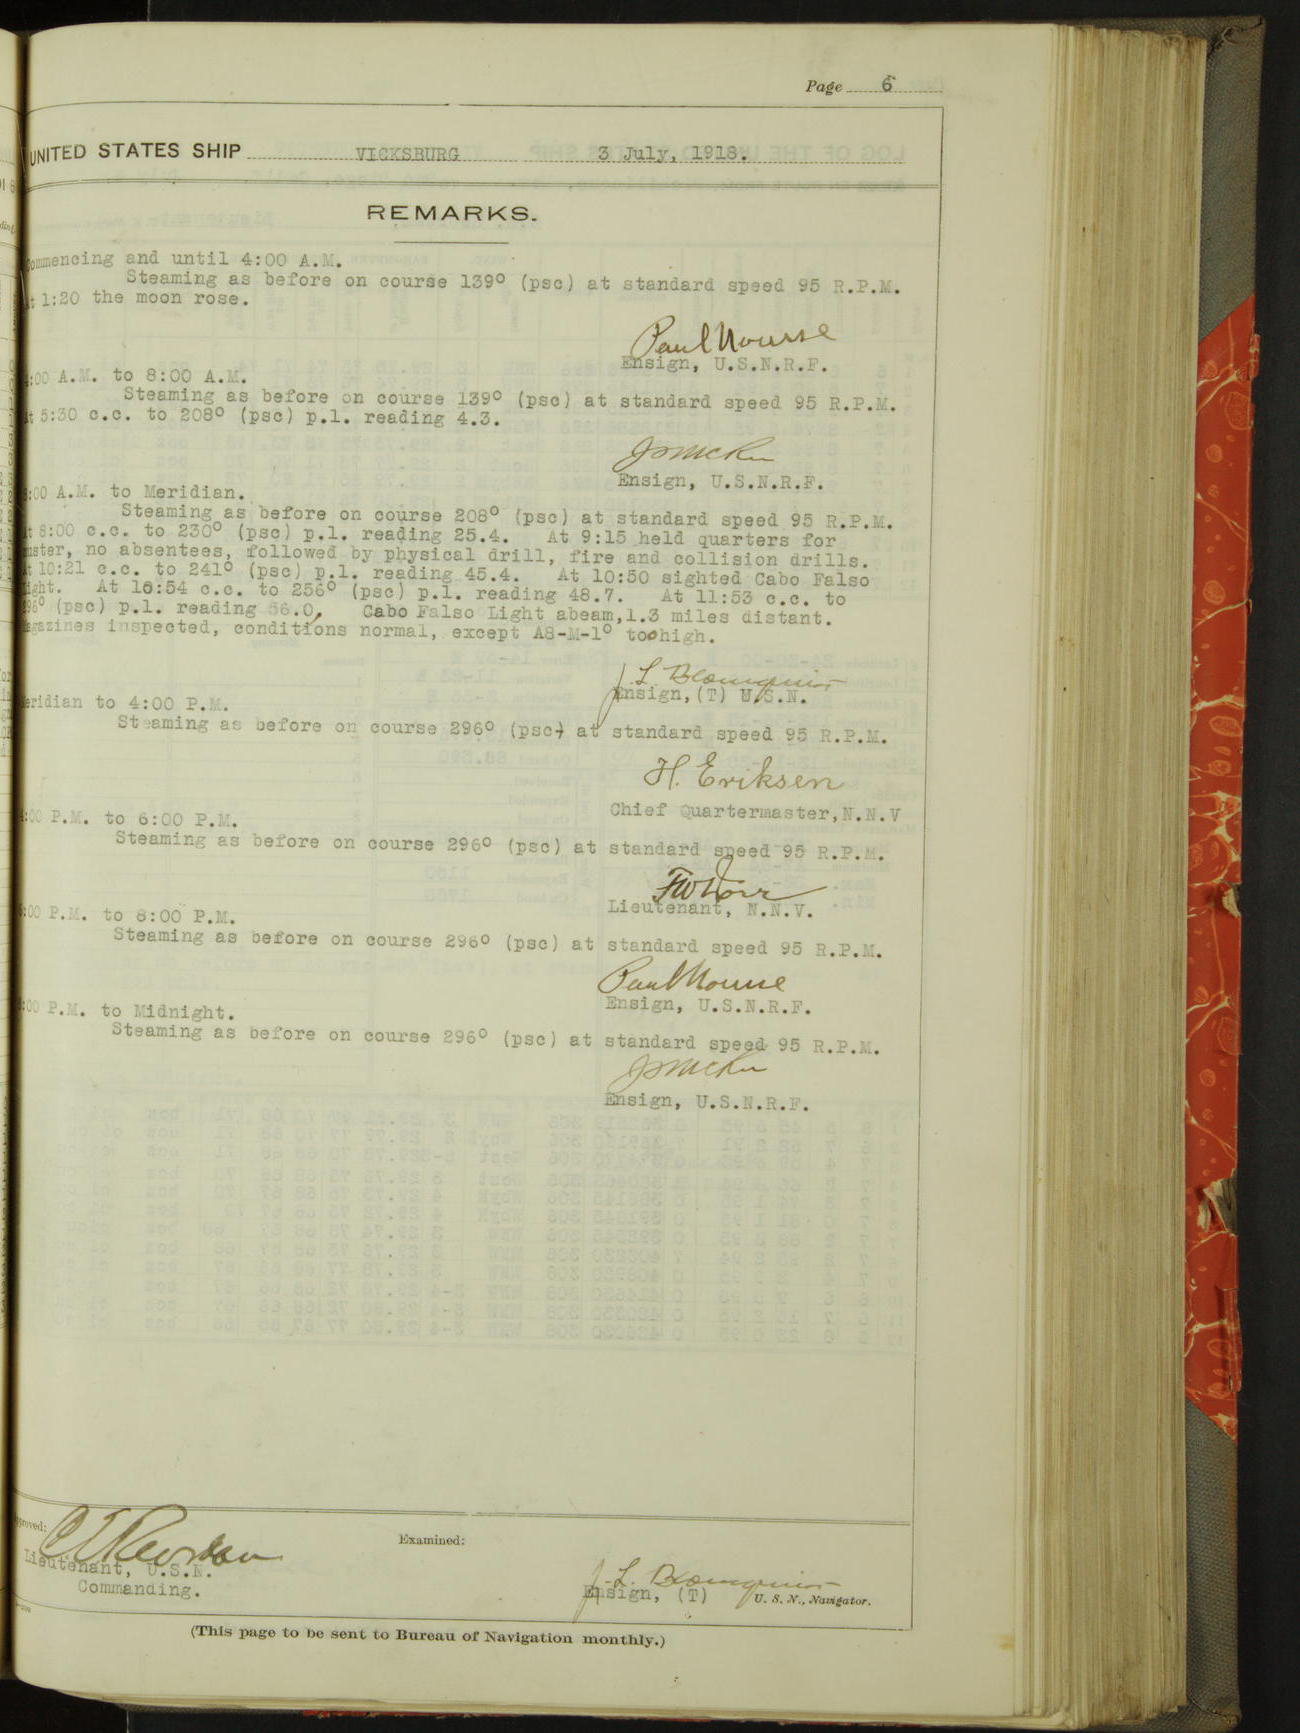 Page 6
UNITED STATES SHIP VICKSBURG 3 July, 1918.
REMARKS.
Commencing and until 4:00 A.M.
Steaming as before on course 139° (psc) at standard speed 95 R.P.M.
At 1:20 the moon rose.
Paul Nourse
Ensign, U.S.N.R.F.
4:00 A.M. to 8:00 A.M.
Steaming as before on course 139° (psc) at standard speed 95 R.P.M.
At 5:30 c.c. to 208° (psc) p.l. reading 4.3.
Ensign, U.S.N.R.F.
8:00 A.M. to Meridian.
Steaming as before on course 208° (psc) at standard speed 95 R.P.M.
At 8:00 c.c. to 230° (psc) p.l. reading 25.4. At 9:15 held quarters for
muster, no absentees, followed by physical drill, fire and collision drills.
At 10:21 c.c. to 241° (psc) p.l. reading 45.4. At 10:50 sighted Cabo Falso
Light. At 10:54 c.c. to 256° (psc) p.l. reading 48.7. At 11:53 c.c. to
296° (psc) p.l. reading 56.0, Cabo Falso Light abeam, 1.3 miles distant.
Magazines inspected, conditions normal, except A8-M-1° too high.
J. L. Blomquist
Ensign, (T) U.S.N.
Meridian to 4:00 P.M.
Steaming as before on course 296° (psc) at standard speed 95 R.P.M.
H. Eriksen
Chief Quartermaster, N.N.V
4:00 P.M. to 6:00 P.M.
Steaming as before on course 296° (psc) at standard speed 95 R.P.M.
Lieutenant, N.N.V.
6:00 P.M. to 8:00 P.M.
Steaming as before on course 296° (psc) at standard speed 95 R.P.M.
Paul Nourse
Ensign, U.S.N.R.F.
8:00 P.M. to Midnight.
Steaming as before on course 296° (psc) at standard speed 95 R.P.M.
Ensign, U.S.N.R.F.
Approved:
Examined:
Lieutenant, U.S.N.
Commanding.
J. L. Blomquist
Ensign, (T) U. S. N., Navigator.
(This page to be sent to Bureau of Navigation monthly.)